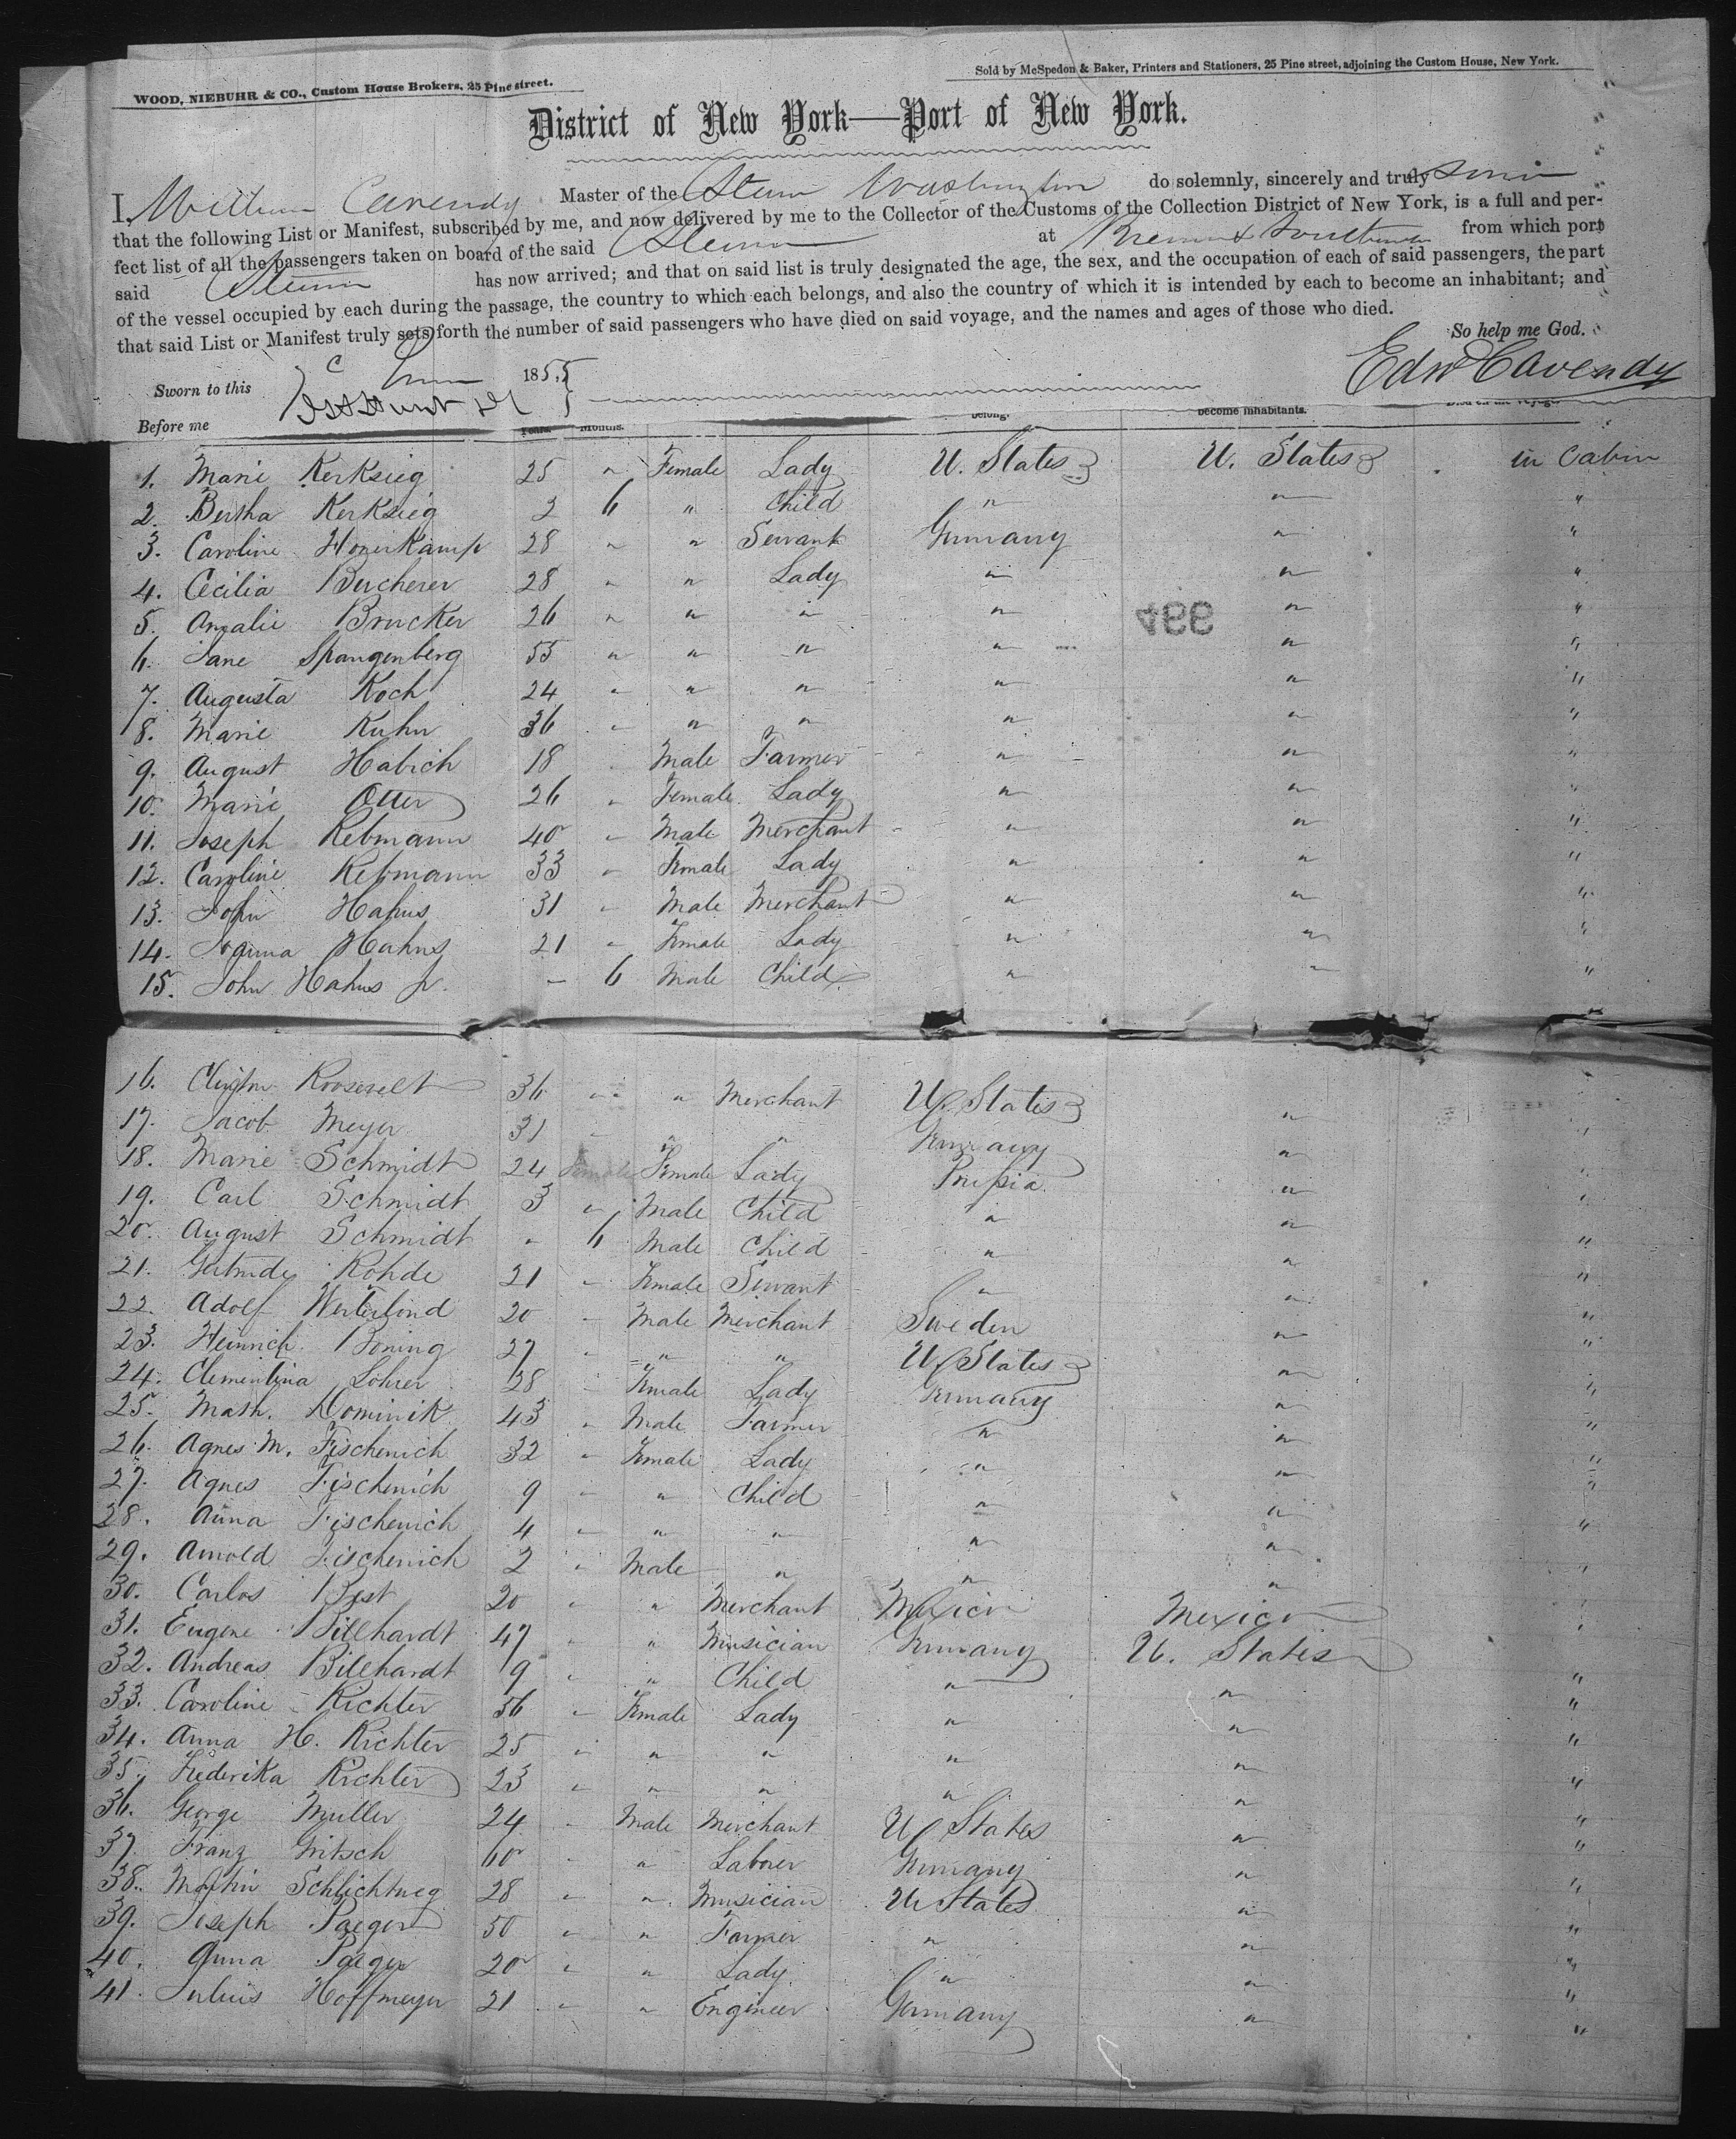 WOOD, NIEBUHR & CO., Custom House Brokers, 25 Pine street.
Sold by McSpedon & Baker, Printers and Stationers, 25 Pine street, adjoining the Custom House, New York.
District of New York—Port of New York.
I, William Cavendy Master of the Steam Washington do solemnly, sincerely and truly
that the following List or Manifest, subscribed by me, and now delivered by me to the Collector of the Customs of the Collection District of New York, is a full and per-
fect list of all the passengers taken on board of the said Steam at Bremen & from which port
said Steam has now arrived; and that on said list is truly designated the age, the sex, and the occupation of each of said passengers, the part
of the vessel occupied by each during the passage, the country to which each belongs, and also the country of which it is intended by each to become an inhabitant; and
that said List or Manifest truly sets forth the number of said passengers who have died on said voyage, and the names and ages of those who died.
So help me God.
Sworn to this 1855
Edw Cavendy
Before me
Years. Months. belong. become inhabitants. Died on the voyage.
1. Marie Kerksieg 25 " Female Lady U. States U. States in Cabin
2. Bertha Kerksieg 2 6 " Child " " "
3. Caroline Honerkamp 28 " " Servant Germany " "
4. Cecilia Bucherer 28 " " Lady " " "
5. Amalie Brucker 26 " " " " " "
6. Jane Spangenberg 55 " " " " " "
7. Augusta Koch 24 " " " " " "
8. Marie Kuhn 36 " " " " " "
9. August Habich 18 Male Farmer " " "
10. Marie Otter 26 " Female Lady " " "
11. Joseph Rebmann 40 " Male Merchant " " "
12. Caroline Rebmann 33 " Female Lady " " "
13. John Hahns 31 " Male Merchant " " "
14. Hahns 21 " Female Lady " " "
15. John Hahns Jr. — 6 Male Child " " "
16. Clinton Roosevelt 36 " " Merchant U. States " "
17. Jacob Meyer 31 " " " Germany " "
18. Marie Schmidt 24 Female Female Lady Prussia " "
19. Carl Schmidt 3 " Male Child " " "
20. August Schmidt " 6 Male Child " " "
21. Gertrude Rohde 21 " Female Servant " " "
22. Adolf Westerlind 20 " Male Merchant Sweden " "
23. Heinrich Boning 27 " " " U. States " "
24. Clementina Lohrer 28 " Female Lady Germany " "
25. Math. Dominik 43 " Male Farmer " " "
26. Agnes M. Fischenich 32 " Female Lady " " "
27. Agnes Fischenich 9 " " Child " " "
28. Anna Fischenich 4 " " " " " "
29. Arnold Fischenich 2 " Male " " " "
30. Carlos Best 20 " " Merchant Mexico Mexico "
31. Eugene Billhardt 47 " " Musician Germany U. States "
32. Andreas Billhardt 9 " " Child " " "
33. Caroline Richter 56 " Female Lady " " "
34. Anna H. Richter 25 " " " " " "
35. Frederika Richter 23 " " " " " "
36. George Muller 24 " Male Merchant U. States " "
37. Franz Gritsch 60 " " Laborer Germany " "
38. Martin Schlichtweg 28 " " Musician U. States " "
39. Joseph Paeger 50 " " Farmer " " "
40. Anna Paeger 20 " " Lady " " "
41. Julius Hoffmeyer 21 " " Engineer Germany " "